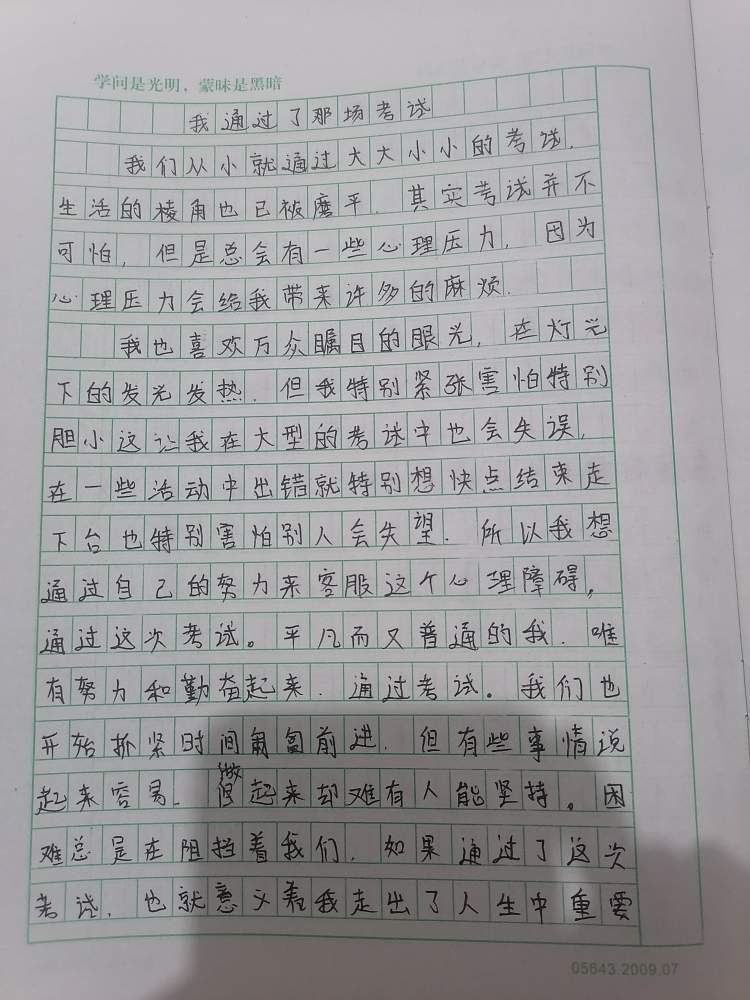 学问是光明，蒙昧是黑暗
我通过了那场考试
我们从小就通过大大小小的考试.
生活的棱角也已被磨平.其实考试并不
可怕，但是总会有一些心理压力，因为
心理压力会给我带来许多的麻烦.
我也喜欢万众瞩目的眼光，在灯光
下的发光发热.但我特别紧张害怕特别
胆小这让我在大型的考试中也会失误，
在一些活动中出错就特别想快点结束走
下台也特别害怕别人会失望.所以我想
通过自己的努力来客服这个心理障碍，
通过这次考试。平凡而又普通的我.唯
有努力和勤奋起来.通过考试。我们也
开始抓紧时间匍匐前进.但有些事情说
起来容易.做起来却难有人能坚持。困
难总是在阻挡着我们.如果通过了这次
考试.也就意义着我走出了人生中重要
05643.2009.07